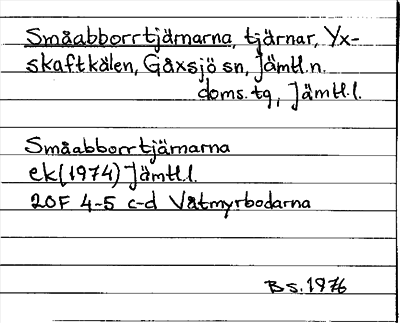 Småabborrtjärnarna, tjärnar, Yx-
skaftkälen, Gåxsjö sn, Jämtl.n.
doms. tg, Jämtl.l.
Småabborrtjärnarna
ek (1974) Jämtl.l.
20F 4-5 c-d Våtmyrbodarna
B s. 1976